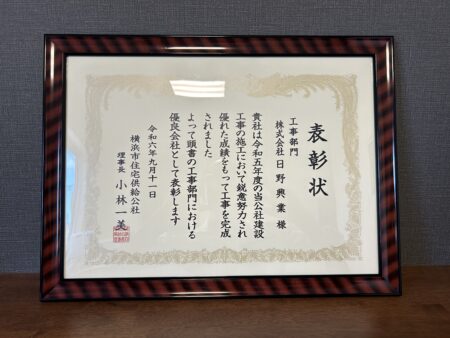 表彰状
工事部門
株式会社 日野興業 様
貴社は令和五年度の当公社建設
工事の施工において鋭意努力され
優れた成績をもって工事を完成
されました
よって頭書の工事部門における
優良会社として表彰します
令和六年九月十一日
横浜市住宅供給公社
理事長 小林一美